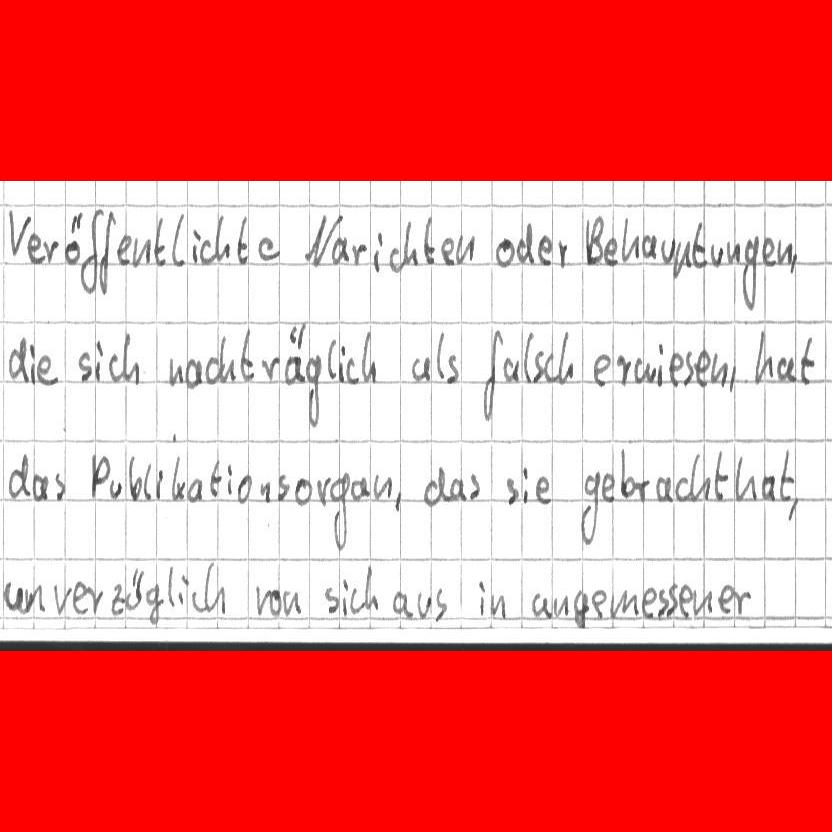 Veröffentlichte Narichten oder Behauptungen,
die sich nachträglich als falsch erwiesen, hat
das Publikationsorgan, das sie gebracht hat,
unverzüglich von sich aus in angemessener